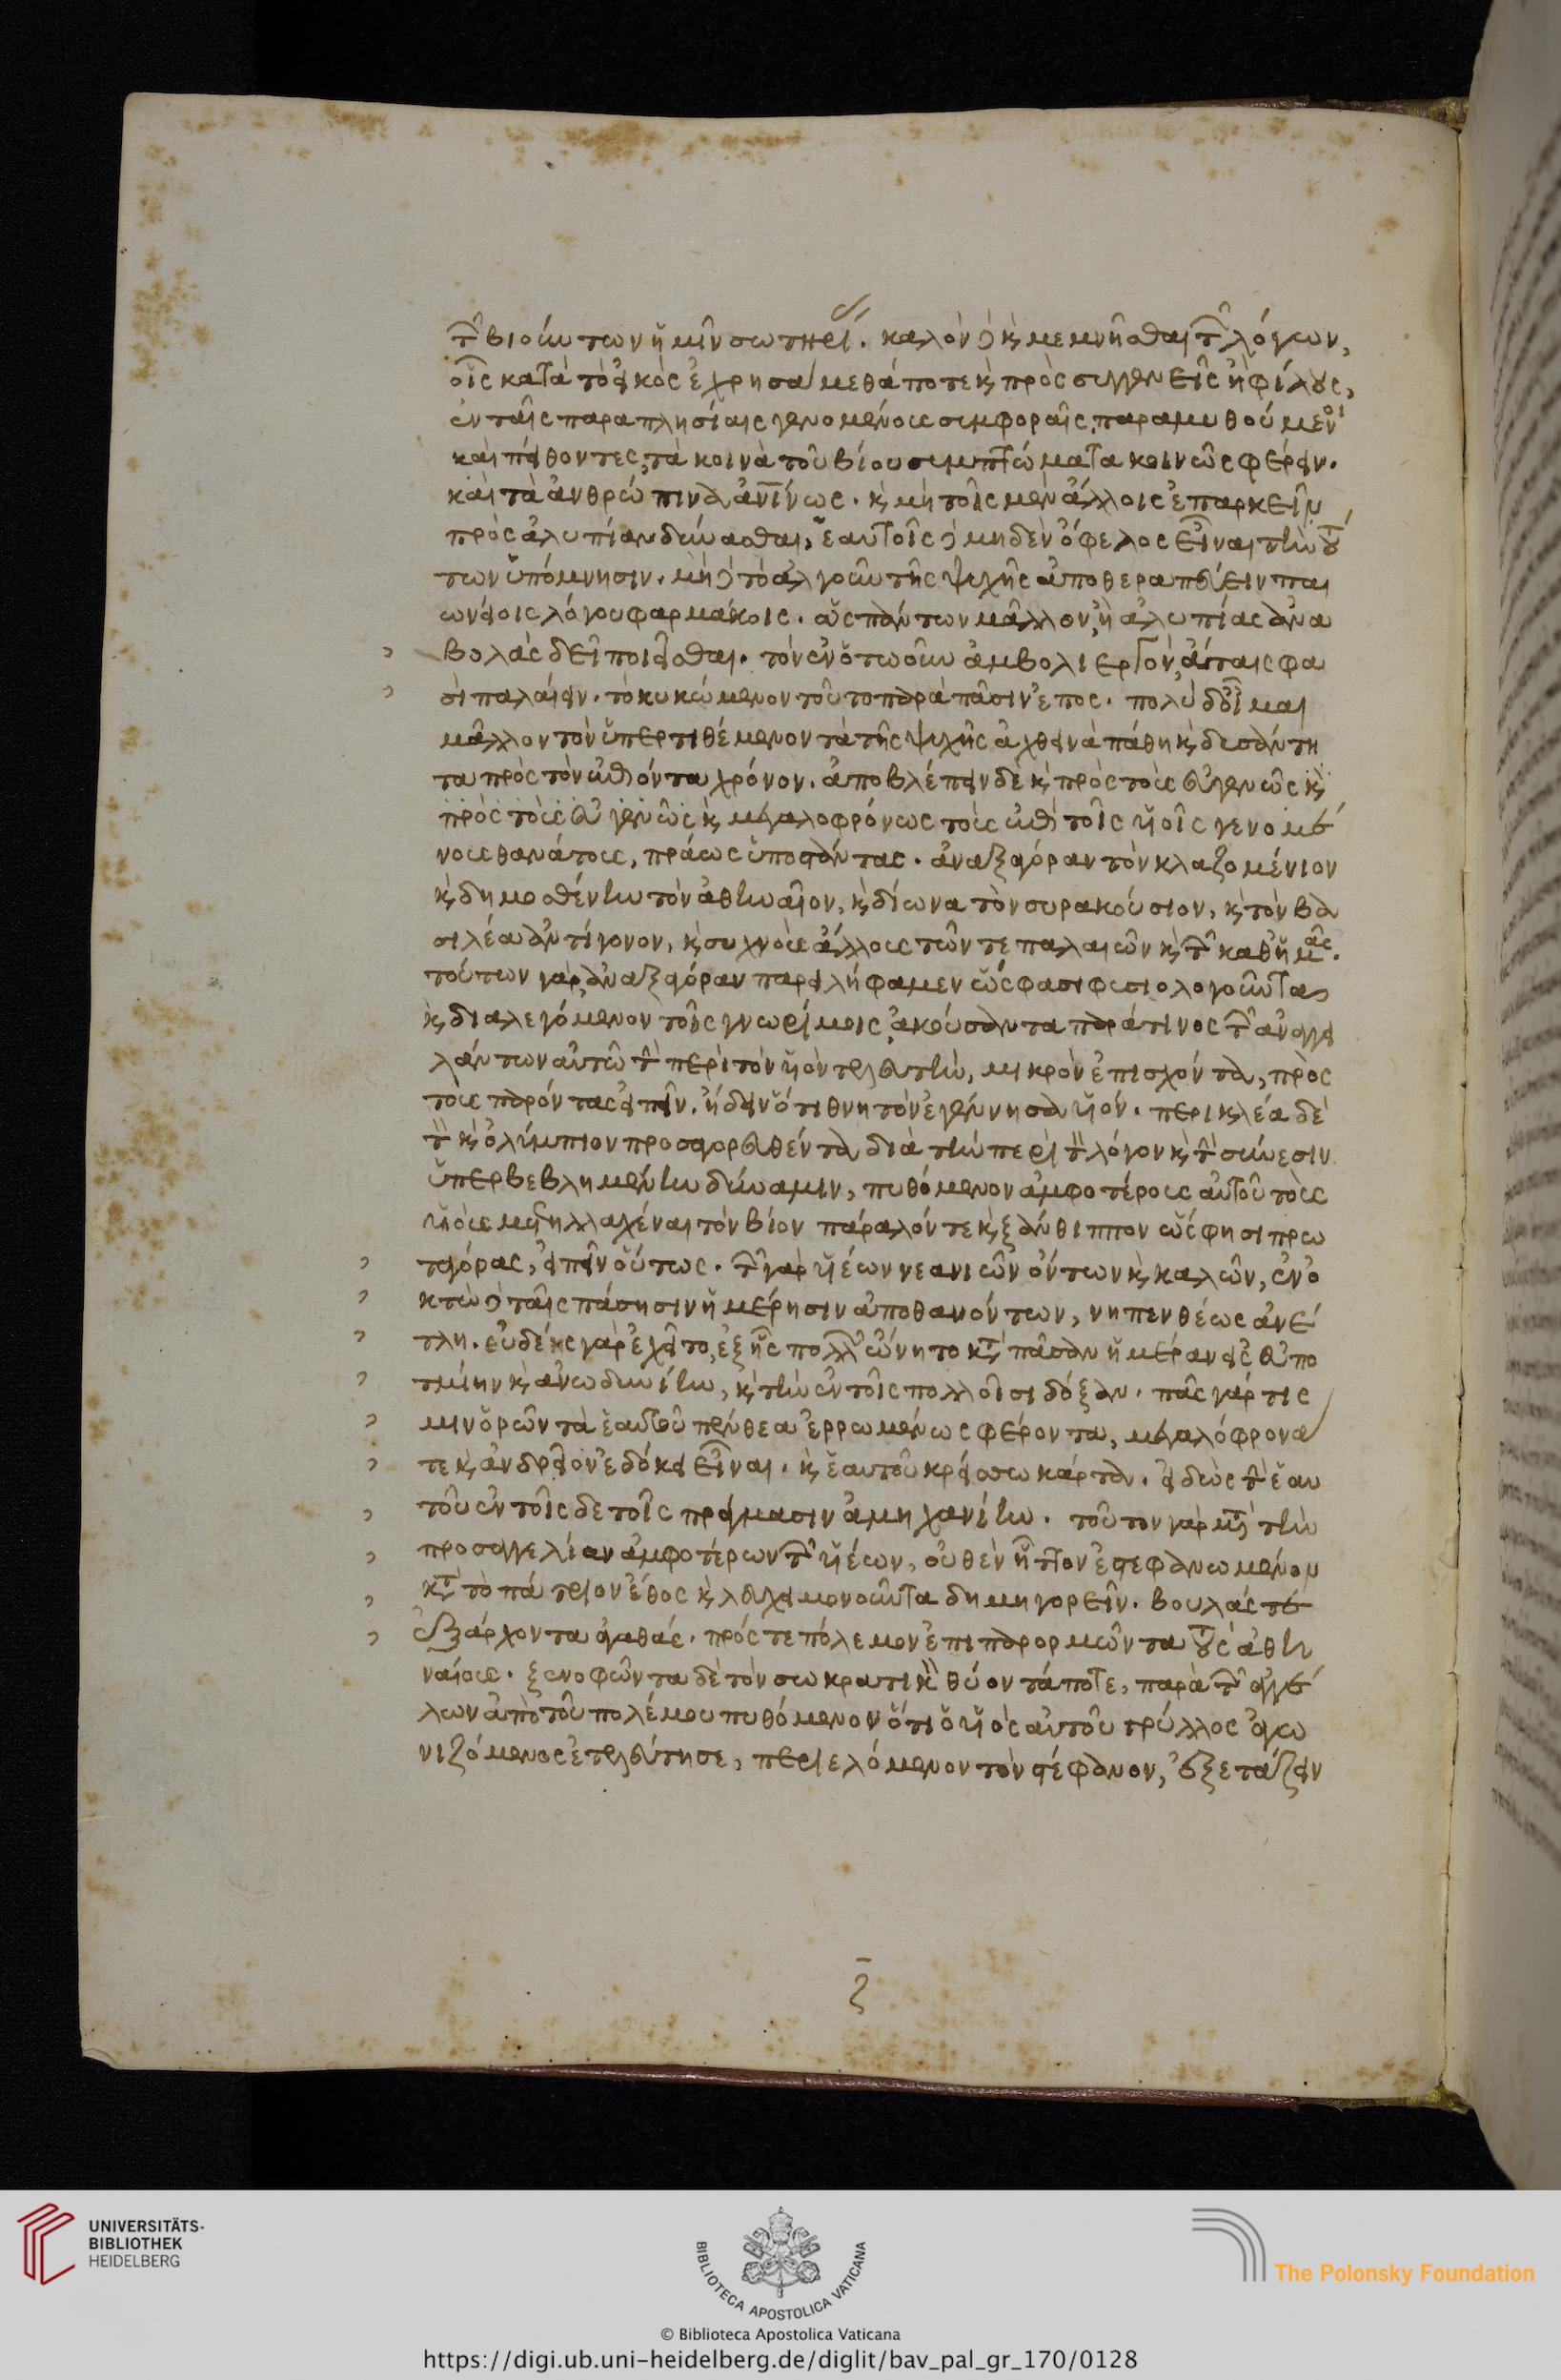 τῶν βιούντων ἡμῖν σωτηρί. καλὸν δὲ καὶ μεμνῆσθαι τῶν λόγων,
οἷς κατὰ τὸ εἰκὸς ἐχρησάμεθά ποτε καὶ πρὸς συγγενεῖς ἢ φίλους,
ἐν ταῖς παραπλησίαις γενομένους συμφοραῖς, παραμυθούμενοι
καὶ πείθοντες, τὰ κοινὰ τοῦ βίου συμπτώματα κοινῶς φέρειν.
καὶ τὰ ἀνθρώπινα ἀνίνως. καὶ μὴ τοῖς μὲν ἄλλοις ἐπαρκεῖν
πρὸς ἀλυπίαν δύνασθαι, ἑαυτοῖς δὲ μηδὲν ὄφελος εἶναι τὴν τού
των ὑπόμνησιν. μὴ δὲ τὸ ἀλγοῦν τῆς ψυχῆς ἀποθεραπεύειν παι
ωνείοις λόγου φαρμάκοις. ὡς πάντων μᾶλλον, ἢ ἀλυπίας ἀνα
βολὰς δεῖ ποιεῖσθαι. τὸν ἐν ὅτω οὖν ἀμβολιεργὸν, ἄταις φα
σὶ παλαίειν. τὸ κυκώμενον τοῦτο παρὰ πᾶσιν ἔπος. πολὺ δ' οἶμαι
μᾶλλον τὸν ὑπερτιθέμενον τὰ τῆς ψυχῆς ἀχθεινὰ πάθη καὶ δυσάντη
τα πρὸς τὸν ἐπιόντα χρόνον. ἀποβλέπειν δὲ καὶ πρὸς τοὺς εὐγενῶς καὶ
πρὸς τοὺς εὐγενῶς καὶ μεγαλοφρόνως τοὺς ἐπὶ τοῖς υἱοῖς γενομέ
νους θανάτους, πράως ὑποστάντας. ἀναξαγόραν τὸν κλαζομένιον
καὶ δημοσθένην τὸν ἀθηναῖον, καὶ δίωνα τὸν συρακούσιον, καὶ τὸν βα
σιλέα ἀντίγονον, καὶ συχνοὺς ἄλλους τῶν τε παλαιῶν καὶ τῶν καθ' ἡμᾶς.
τούτων γὰρ ἀναξαγόραν παρειλήφαμεν ὥς φασι φυσιολογοῦντα
καὶ διαλεγόμενον τοῖς γνωρίμοις, ἀκούσαντα παρά τινος τῶν ἀναγγει
λάντων αὐτῶ τὴν περὶ τὸν υἱὸν τελευτὴν, μικρὸν ἐπισχόντα, πρὸς
τοὺς παρόντας εἰπεῖν. ἤδειν ὅτι θνητὸν ἐγέννησα υἱόν. περικλέα δὲ
τὸν καὶ ὀλύμπιον προσαγορευθέντα διὰ τὴν περὶ τὸν λόγον καὶ τὴν σύνεσιν
ὑπερβεβλημένην δύναμιν, πυθόμενον ἀμφοτέρους αὐτοῦ τοὺς
υἱοὺς μετηλλαχέναι τὸν βίον πάραλόν τε καὶ ξάνθιππον ὥς φησι πρω
ταγόρας, εἰπεῖν οὕτως. τῶν γὰρ υἱέων νεανιῶν ὄντων καὶ καλῶν, ἐν ὀ
κτὼ δὲ ταῖς πάσησιν ἡμέρησιν ἀποθανόντων, νηπενθέως ἀνέ
τλη. εὐδίης γὰρ εἴχετο, ἐξ ἧς πολλὸν ὤνητο κατὰ πᾶσαν ἡμέραν εἰς εὐπο
τμίην καὶ ἀνωδυνίην, καὶ τὴν ἐν τοῖς πολλοῖσι δόξαν. πᾶς γάρ τις
μιν ὁρῶν τὰ ἑαυτοῦ πένθεα ἐρρωμένως φέροντα, μεγαλόφρονα
τε καὶ ἀνδρεῖον ἐδόκει εἶναι. καὶ ἑαυτοῦ κρείσσω κάρτα. εἰδὼς τὴν ἑαυ
τοῦ ἐν τοῖς δε τοῖς πράγμασιν ἀμηχανίην. τοῦτον γὰρ μετὰ τὴν
προσαγγελίαν ἀμφοτέρων τῶν υἱέων, οὐθὲν ἧττον ἐστεφανωμένον
κατὰ τὸ πάτριον ἔθος καὶ λευχειμονοῦντα δημηγορεῖν. βουλάς τε
ἐξάρχοντα ἀγαθάς. πρός τε πόλεμον ἐπιπαρορμῶντα τοὺς ἀθη
ναίους. ξενοφῶντα δὲ τὸν σωκρατικὸν θύοντά ποτε, παρὰ τῶν ἀγγέ
λων ἀπὸ τοῦ πολέμου πυθόμενον ὅτι ὁ υἱὸς αὐτοῦ γρύλλος ἀγω
νιζόμενος ἐτελεύτησε, περιελόμενον τὸν στέφανον, ἐξετάζειν
ζ
UNIVERSITÄTS-
BIBLIOTHEK
HEIDELBERG
BIBLIOTECA APOSTOLICA VATICANA
The Polonsky Foundation
© Biblioteca Apostolica Vaticana
https://digi.ub.uni-heidelberg.de/diglit/bav_pal_gr_170/0128